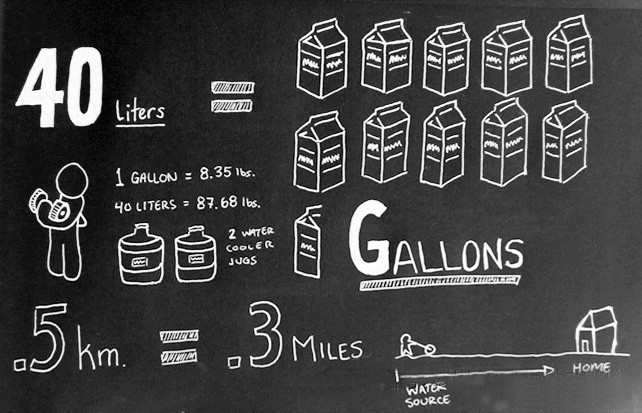 40 liters =
1 GALLON = 8.35 lbs.
40 LITERS = 87.68 lbs.
2 WATER
COOLER
JUGS
GALLONS
.5 km. = .3 MILES
WATER
SOURCE
HOME